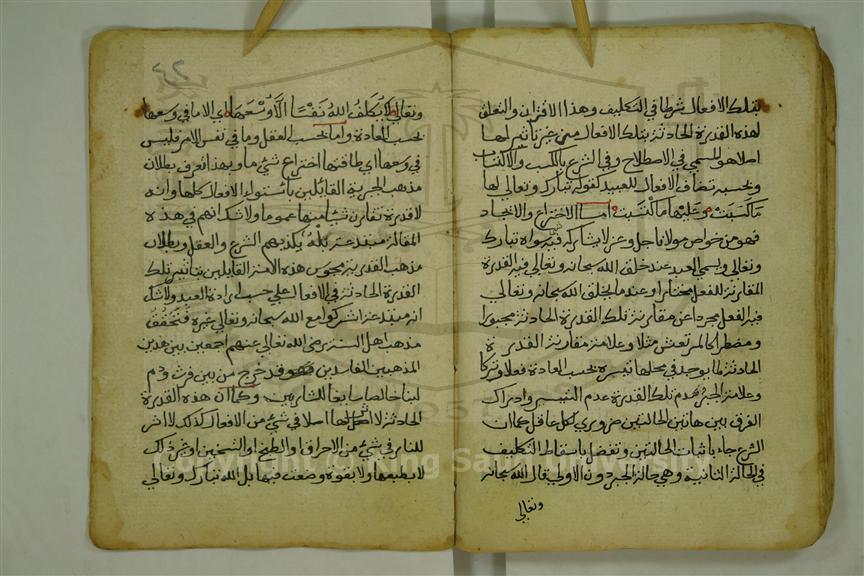 بتلك الافعال شرطا في التكليف وهذا الاقتران والتعلق
لهذه القدرة الحادثة بتلك الافعال من غير تاثير لها
اصلا هو المسمى في الاصطلاح وفي الشرع بالكسب والاكتساب
وبحسبه تضاف الافعال للعبيد كقوله تبارك وتعالى لها
ما كسبت وعليها ما اكتسبت اما الاختراع والايجاد
فهو من خواص مولانا جل وعز لا يشاركه فيه سواه تبارك
وتعالى ويسمى العبد عند خلق الله سبحانه وتعالى فيه القدرة
المقارنة للفعل مختارا وعندما يخلق الله سبحانه وتعالى
فيه الفعل مجردا عن مقارنة تلك القدرة الحادثة مجبورا
ومضطرا كالمرتعش مثلا وعلامة مقارنة القدرة
الحادثة لما يوجد في محلها تيسره بحسب العادة فعلا وتركا
وعلامة الجبر وعدم تلك القدرة عدم التيسر وادراك
الفرق بين هاتين الحالتين ضروري لكل عاقل كما ان
الشرع جاء باثبات الحالتين وتفضل باسقاط التكليف
في الحالة الثانية وهي حالة الجبر دون الاولى قال الله سبحانه
وتعالى
٤٢
وتعالى لا يكلف الله نفسا الا وسعها اي الا ما في وسعها
بحسب العادة واما بحسب العقل وما في نفس الامر فليس
في وسعها اي طاقتها اختراع شيء ما وبهذا تعرف بطلان
مذهب الجبرية القائلين باستواء الافعال كلها وانه
لا قدرة تقارن شيا منها عموما ولا شك انهم في هذه
المقالة مبتدعة بله يكذبهم الشرع والعقل وبطلان
مذهب القدرية مجوس هذه الامة القائلين بتاثير تلك
القدرة الحادثة في الافعال على حسب ارادة العبد ولا شك
انهم مبتدعة اشركوا مع الله سبحانه وتعالى غيره فتحقق
مذهب اهل السنة رضي الله تعالى عنهم اجمعين بين هذين
المذهبين الفاسدين فهو قد خرج من بين فرث ودم
لبنا خالصا سائغا للشاربين وكما ان هذه القدرة
الحادثة لا اثر لها اصلا في شيء من الافعال كذلك لا اثر
للنار في شيء من الاحراق والطبخ او التسخين او غير ذلك
لا بطبعها ولا بقوة وضعت فيها بل الله تبارك وتعالى